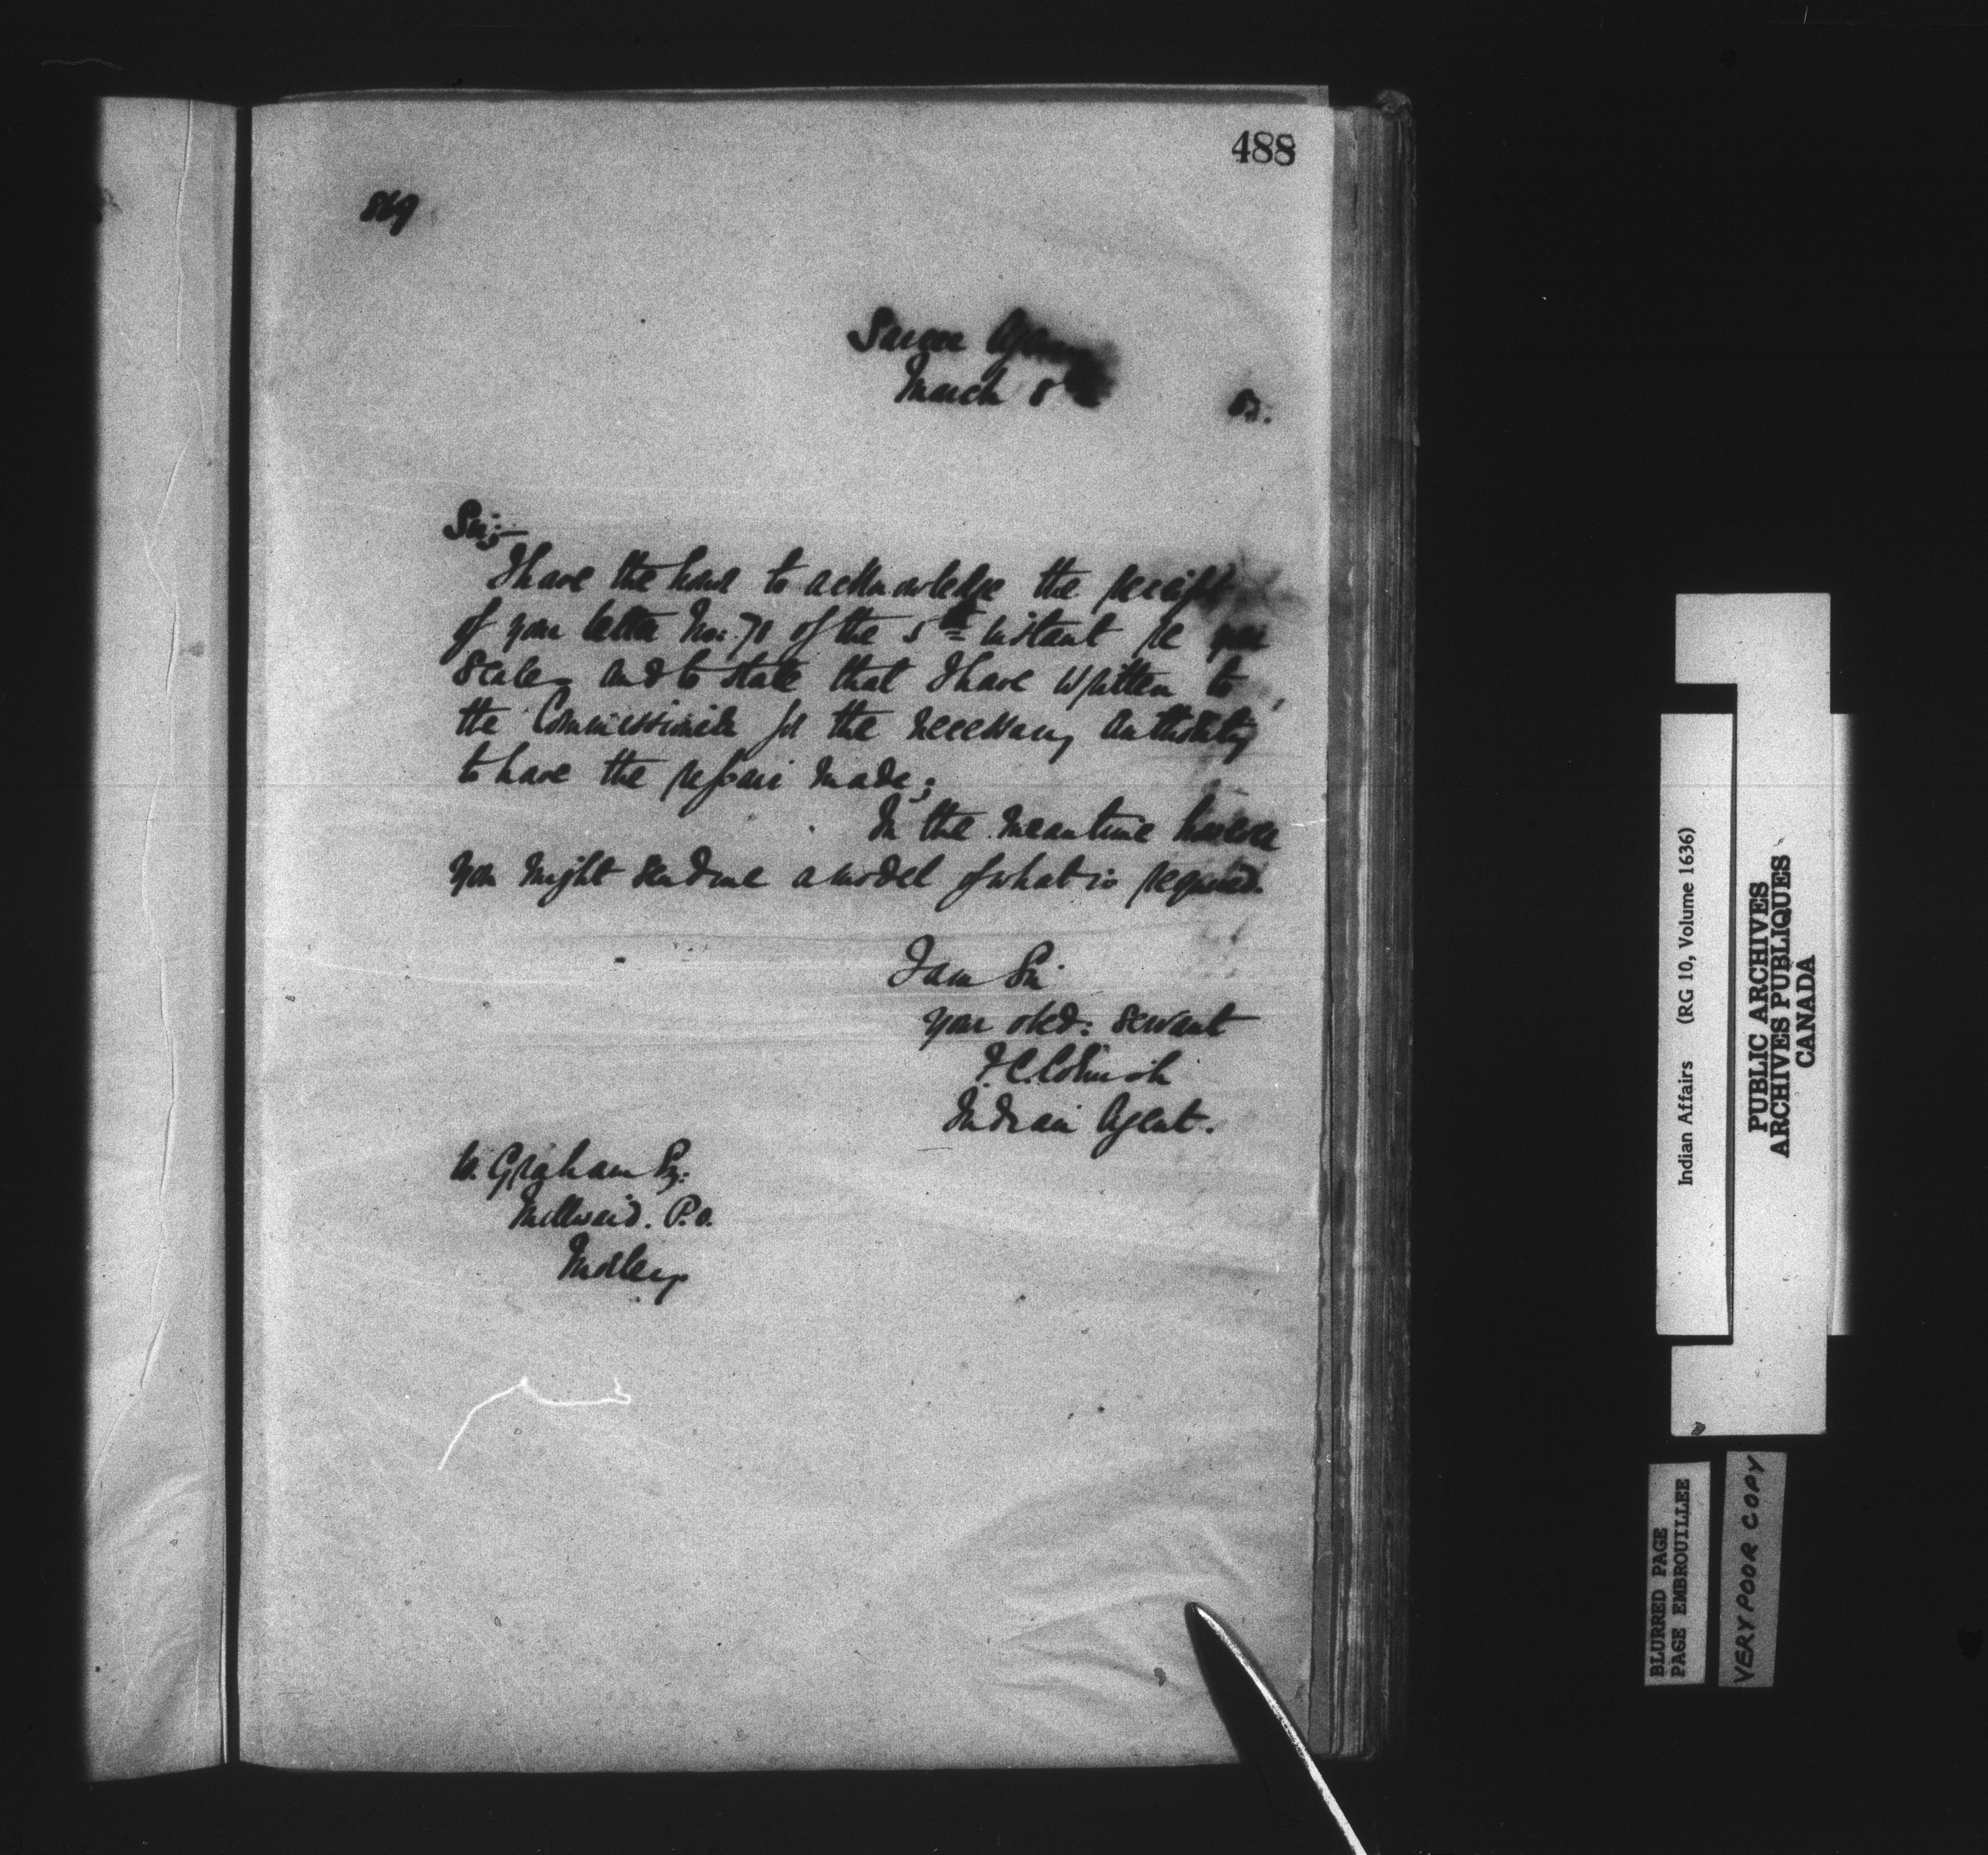 488
869
Sarcee Agency
March 8th
Sir;-
I have the honr to acknowledge the receipt
of your letter No: 78 of the 5th instant re your
Scales and to state that I have written to
the Commissioner for the necessary authority
to have the repair made;
In the meantime however
you might send me a model of what is required.
I am Sir
your obed: servant
Indian Agent.
W. Graham Esq:
Morley
Indian Affairs (RG 10, Volume 1636)
PUBLIC ARCHIVES
ARCHIVES PUBLIQUES
CANADA
BLURED PAGE
PAGE EMBROUILLEE
VERY POOR COPY